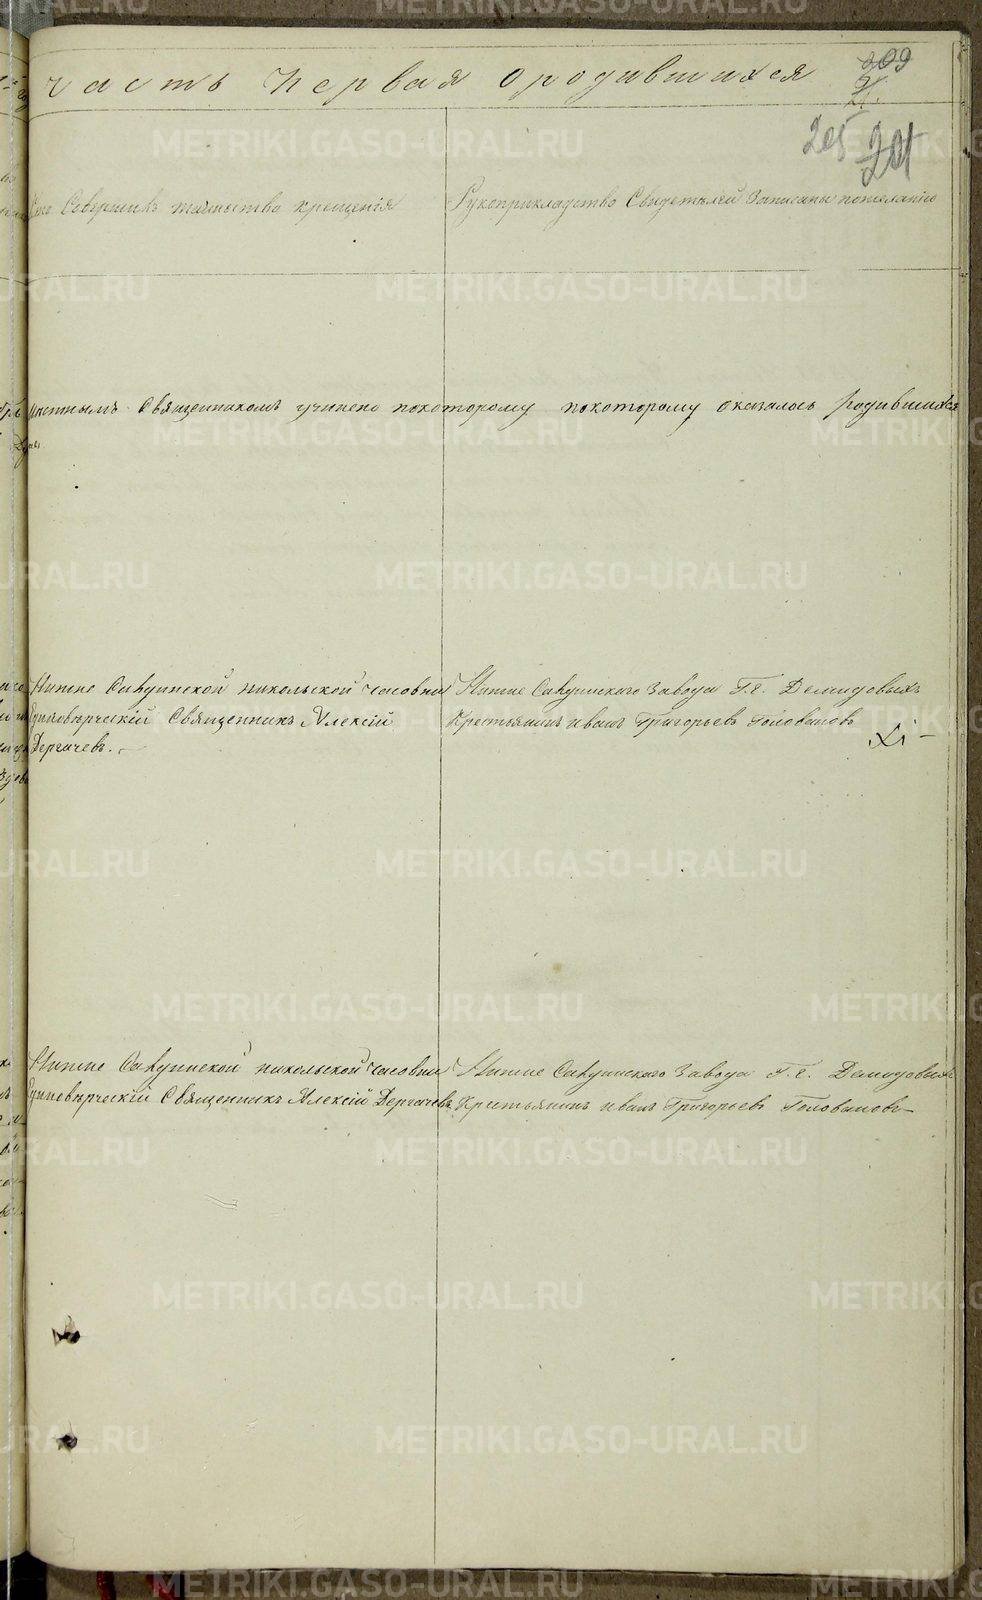 часть первая о родившихся
309
205 201
Кто Совершилъ таинство крещенія
Рукоприкладство Свидетелей Записаны пожеланію
местнымъ Священникомъ учинено покоторому покоторому оказалось родившихся
Нижне Салдинской никольской часовни
Единоверческій Священникъ Алексій
Дергачевъ.
Нижне Салдинскаго Завода Г. Г. Демидовыхъ
Крестьянинъ иванъ Григорьевъ Головановъ
Нижне Салдинской никольской часовни
Единоверческій Священникъ Алексій Дергачевъ
Нижне Салдинскаго Завода Г. Г. Демидовыхъ
Крестьянинъ иванъ Григорьевъ Головановъ
METRIKI.GASO-URAL.RU